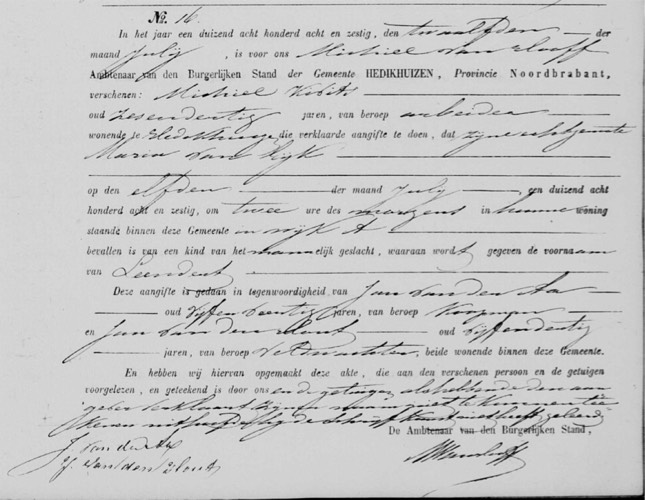 No. 16.
In het jaar een duizend acht honderd acht en zestig, den twaalfden der
maand July, is voor ons Michiel van
Ambtenaar van den Burgerlijken Stand der Gemeente HEDIKHUIZEN, Provincie Noordbrabant,
verschenen: Michiel
oud zesendertig jaren, van beroep arbeider
wonende te Hedikhuizen die verklaarde aangifte te doen, dat zijne echtgenoote
Maria van Dijk
op den elfden der maand July, een duizend acht
honderd acht en zestig, om twee ure des morgens in hunne woning
staande binnen deze Gemeente in wijk A
bevallen is van een kind van het mannelijk geslacht, waaraan wordt gegeven de voornaam
van Leendert
Deze aangifte is gedaan in tegenwoordigheid van Jan van der Aa
oud jaren, van beroep Koopman
en Jan van den Hout oud vijffendertig
jaren, van beroep veldwachter, beide wonende binnen deze Gemeente.
En hebben wij hiervan opgemaakt deze akte, die aan den verschenen persoon en de getuigen
voorgelezen, en geteekend is door ons en de getuigen, als hebbende den aan-
gever verklaard zijnen naam niet te kunnen tee-
kenen uithoofde hij de schrijfkunst niet heeft geleerd
De Ambtenaar van den Burgerlijken Stand,
J. van der Aa
J. van den Hout